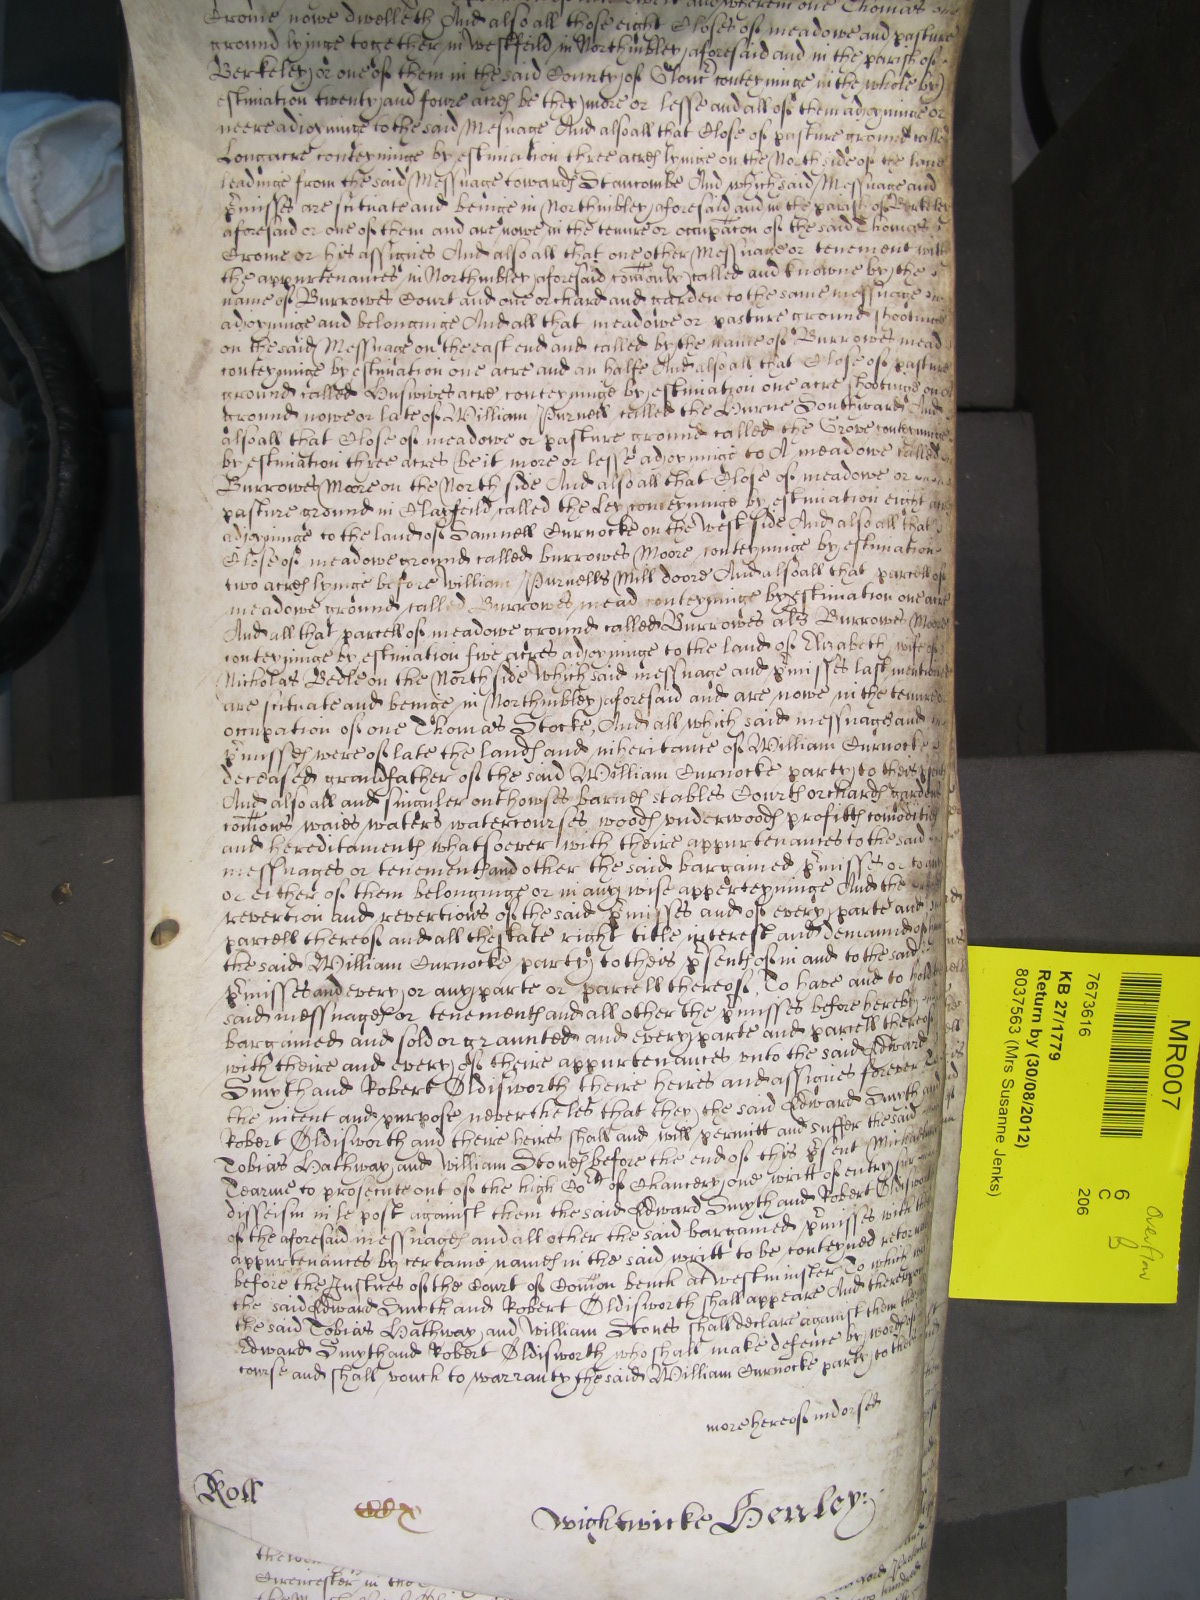 Crome nowe dwelleth And also all those eight Closes of meadowe and pasture
ground lyinge together in Westfeild in Northnibley aforesaid and in the parish of
Berkeley or one of them in the said County of Glouc conteyninge in the whole by
estimation twenty and foure acres be they more or lesse and all of them adjoyninge or
neere adjoyninge to the said Messuage And also all that Close of pasture ground called
Longacre conteyninge by estimation three acres lyinge on the North side of the lane
leadinge from the said Messuage towards Stancombe And which said Messuage and
pmisses are scituate and beinge in Northnibley aforesaid and in the parish of Berkeley
aforesaid or one of them and are nowe in the tenure or occupacon of the said Thomas
Crome or his assignes And also all that one other Messuage or tenement with
the appurtenances in Northnibley aforesaid comonly called and knowne by the
name of Burrowes Court and one orchard and garden to the same messuage
adjoyninge and belonginge And all that meadowe or pasture ground shootinge
on the said Messuage on the east end and called by the name of Burrowes mead
conteyninge by estimation one acre and an halfe And also all that Close of pasture
ground called Huswives acre conteyninge by estimation one acre shootinge on
ground nowe or late of William Purnell called the Hurne Southward And
also all that Close of meadowe or pasture ground called the Grove conteyninge
by estimation three acres be it more or lesse adjoyninge to A meadowe called
Burrowes Moore on the North side And also all that Close of meadowe or
pasture ground in Clayfeild called the Ley conteyninge by estimation eight
adjoyninge to the land of Samuell Curnocke on the West side And also all that
Close of meadowe ground called Burrowes Moore conteyninge by estimation
two acres lyinge before William Purnells Mill doore And also all that parcell of
meadowe ground called Burrowes mead conteyninge by estimation one acre
And all that parcell of meadowe ground called Burrowes als Burrowes Moore
conteyninge by estimation five acres adjoyninge to the land of Elizabeth wife of
Nicholas Bedle on the North side which said messuage and pmisses last mentioned
are scituate and beinge in Northnibley aforesaid and are nowe in the tenure
occupation of one Thomas Stocke, And all which said messuages and
pmisses were of late the lands and inheritance of William Curnocke
deceased grandfather of the said William Curnocke party to theis psents
And also all and singuler outhowses barnes stables Courts orchards gardens
comons waies waters watercourses woods underwoods profitts comodities
and hereditaments whatsoever with theire appurtenances to the said
messuages or tenements and other the said bargained pmisses or to any
or either of them belonginge or in any wise apperteyninge And the
revertion and revertions of the said pmisses and of every parte and
parcell thereof and all thestate right title interest and demaund of
the said William Curnocke party to theis psents of in and to the said
pmisses and every or any parte or parcell thereof. To have and to hold
said messuages or tenements and all other the pmisses before hereby
bargained and sold or graunted and every parte and parcell thereof
with theire and every of theire appurtenances unto the said Edward
Smyth and Robert Oldisworth theire heires and assignes forever
the intent and purpose neverthelesthat they the said Edward Smyth and
Robert Oldisworth and theire heires shall and will permitt and suffer the said
Tobias Hathway and William Stones before the end of this psent Michaelmas
Tearme to prosecute out of the high Cort of Chancery one writt of entry sur
disseisin in le post against them the said Edward Smyth and Robert Oldisworth
of the aforesaid messuages and all other the said bargained pmisses with the
appurtenances by certaine names in the said writt to be conteyned retorn
before the Justices of the Court of Comon bench at westminster To which
the said Edward Smyth and Robert Oldisworth shall appeare And thereupon
the said Tobias Hathway and William Stones shall declare against them the
Edward Smyth and Robert Oldisworth who shall make defence by word of
course and shall vouch to warranty the said William Curnocke party to theis
more hereof indorsed
Roll
Wightwicke Henley:
MR007
7673616
6
C
206
KB 27/1779
Return by (30/08/2012)
8037563 (Mrs Susanne Jenks)
Overflow
B
Cirencester in the